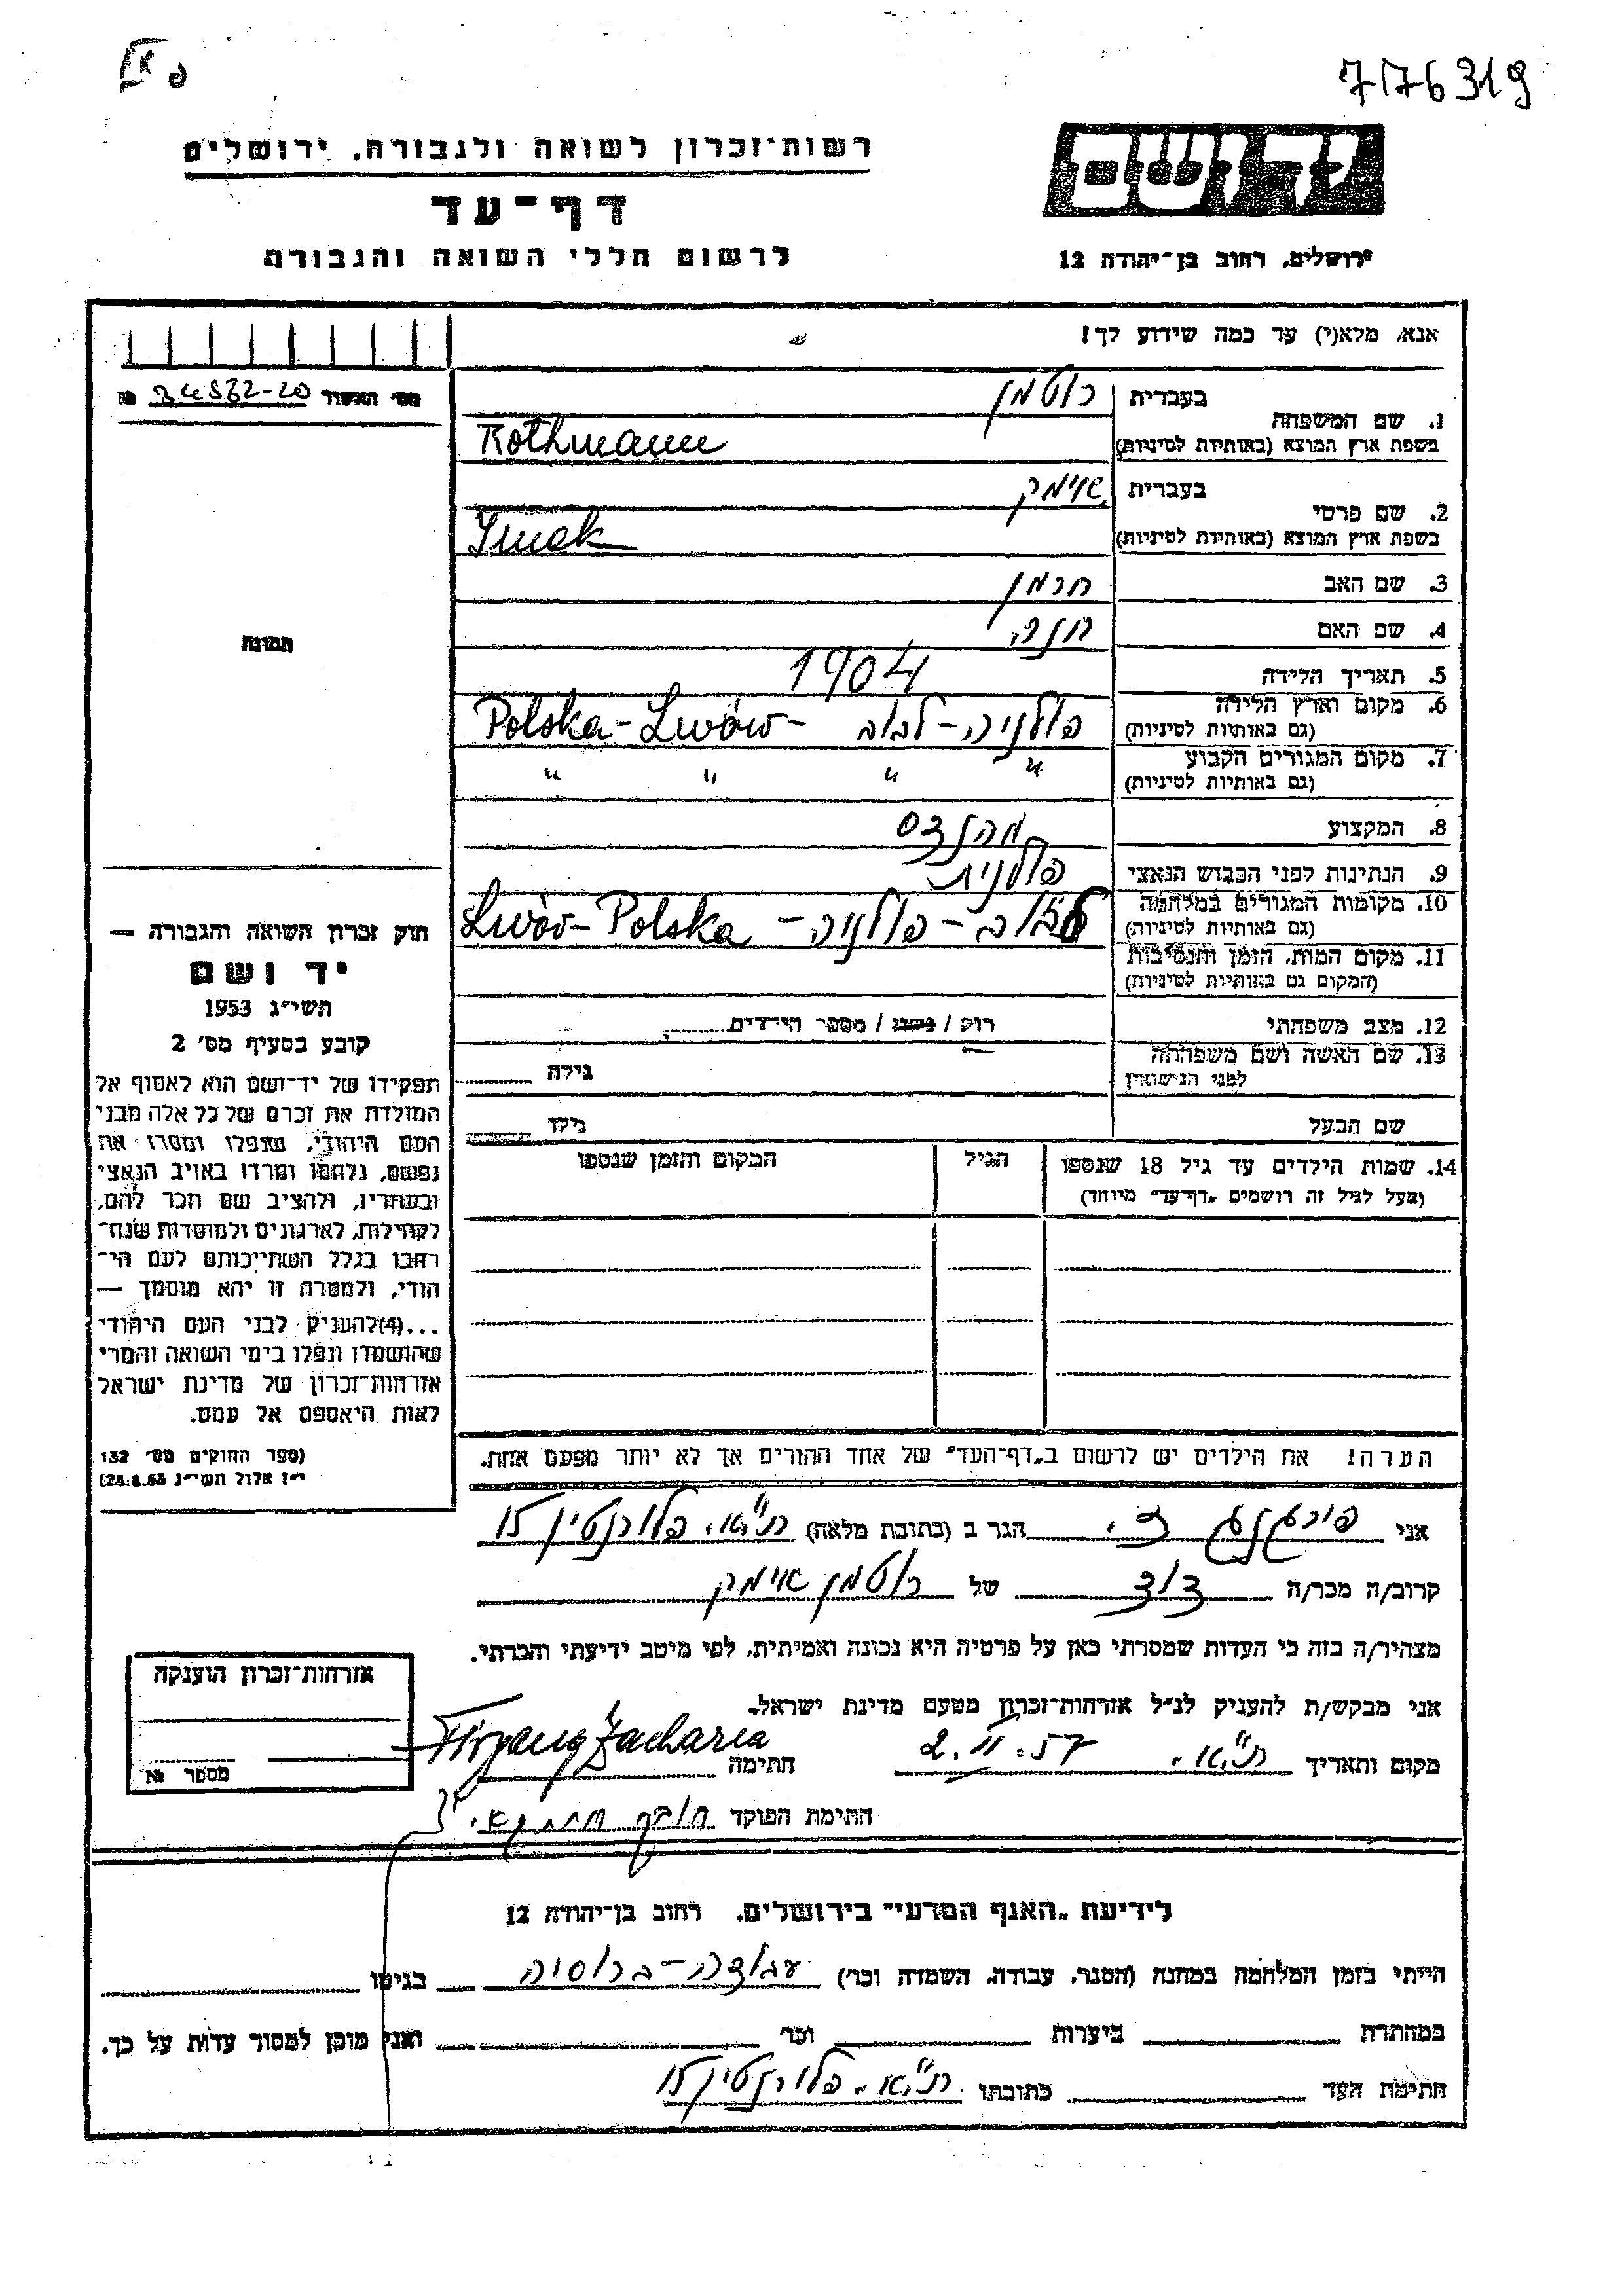 7176319
רשות־זכרון לשואה ולגבורה, ירושלים
דף־עד
לרשום חללי השואה והגבורה
ירושלים, רחוב בן־יהודה 12
אנא, מלא(י) עד כמה שידוע לך!
מס׳ האשור 34532-20 №
1. שם המשפחה
בעברית רוטמן
בשפת ארץ המוצא (באותיות לטיניות) Rothmann
2. שם פרטי
בעברית אימק
בשפת ארץ המוצא (באותיות לטיניות) Imek
3. שם האב הרמן
4. שם האם חנה
5. תאריך הלידה 1904
6. מקום וארץ הלידה פולניה - לבוב - Polska - Lwów
(גם באותיות לטיניות)
7. מקום המגורים הקבוע " " " "
(גם באותיות לטיניות)
8. המקצוע מהנדס
9. הנתינות לפני הכבוש הנאצי פולנית
10. מקומות המגורים במלחמה לבוב - פולניה - Lwów - Polska
(גם באותיות לטיניות)
11. מקום המות, הזמן והנסיבות
(המקום גם באותיות לטיניות)
12. מצב משפחתי רווק / נשוי / מספר הילדים
13. שם האשה ושם משפחתה
לפני הנישואין גילה
שם הבעל גילו
14. שמות הילדים עד גיל 18 שנספו הגיל המקום והזמן שנספו
(מעל לגיל זה רושמים „דף־עד״ מיוחד)
תמונה
חוק זכרון השואה והגבורה —
יד ושם
תשי״ג 1953
קובע בסעיף מס׳ 2
תפקידו של יד־ושם הוא לאסוף אל
המולדת את זכרם של כל אלה מבני
העם היהודי, שנפלו ומסרו את
נפשם, נלחמו ומרדו באויב הנאצי
ובעוזריו, ולהציב שם וזכר להם,
לקהילות, לארגונים ולמוסדות שנח־
רבו בגלל השתייכותם לעם הי־
הודי, ולמטרה זו יהא מוסמך —
...(4) להעניק לבני העם היהודי
שהושמדו ונפלו בימי השואה והמרי
אזרחות־זכרון של מדינת ישראל
לאות היאספם אל עמם.
(ספר החוקים מס׳ 132
י״ז אלול תשי״ג 28.8.53)
הערה! את הילדים יש לרשום ב„דף־העד״ של אחד ההורים אך לא יותר מפעם אחת.
אני פירגנג ז. הגר ב (כתובת מלאה) ת״א, פלורנטין 15
קרוב/ה מכר/ה דוד של רוטמן אימק
מצהיר/ה בזה כי העדות שמסרתי כאן על פרטיה היא נכונה ואמיתית, לפי מיטב ידיעתי והכרתי.
אני מבקש/ת להעניק לנ״ל אזרחות־זכרון מטעם מדינת ישראל.
מקום ותאריך ת״א. 2.II.57 חתימה Firgang Zacharia
חתימת הפוקד
אזרחות־זכרון הוענקה
מספר №
לידיעת „האגף המדעי״ בירושלים, רחוב בן־יהודה 12
הייתי בזמן המלחמה במחנה (הסגר, עבודה, השמדה וכו׳) עבודה - ברוסיה בגיטו
במחתרת ביערות וכו׳ ואני מוכן למסור עדות על כך.
חתימת העד כתובתו ת״א. פלורנטין 15